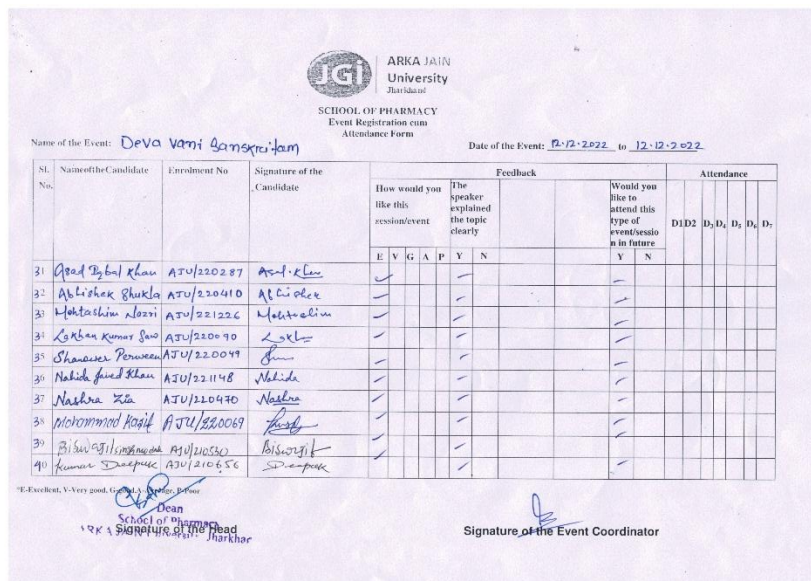 JGi
ARKA JAIN
University
Jharkhand
SCHOOL OF PHARMACY
Event Registration cum
Attendance Form
Name of the Event: Deva Vani Sanskritam
Date of the Event: 12.12.2022 to 12.12.2022
Sl. No. NameoftheCandidate Enrolment No Signature of the Candidate Feedback Attendance
How would you like this session/event The speaker explained the topic clearly Would you like to attend this type of event/session in future D1 D2 D3 D4 D5 D6 D7
E V G A P Y N Y N
31 Asad Iqbal Khan AJU/220287
32 Abhishek Shukla AJU/220410 Abhishek
33 Mohtashim AJU/221226
34 Lakhan Kumar AJU/220090
35 Perween AJU/220049
36 Nahida Javed Khan AJU/221148 Nahida
37 Nashra Zia AJU/220470 Nashra
38 Mohammad Kasif AJU/220069
39 AJU/210530 Biswajit
40 Kumar Deepak AJU/210656 Deepak
*E-Excellent, V-Very good, G-good, A-Average, P-Poor
Dean
School of Pharmacy
Signature of the Head
Jharkhand
Signature of the Event Coordinator